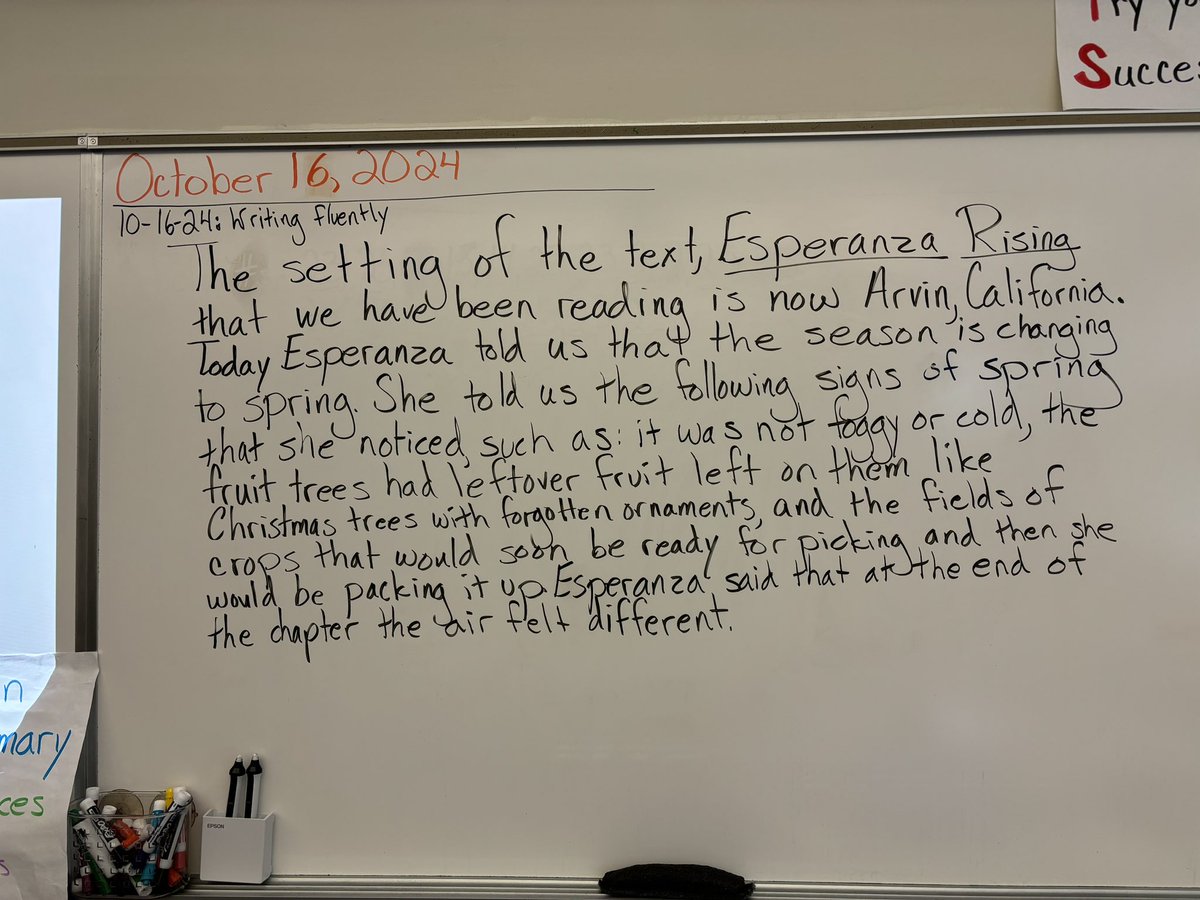 Try yo
Succes
October 16, 2024
10-16-24: Writing fluently
The setting of the text, Esperanza Rising
that we have been reading is now Arvin, California.
Today Esperanza told us that the season is changing
to spring. She told us the following signs of spring
that she noticed, such as: it was not foggy or cold, the
fruit trees had leftover fruit left on them like
Christmas trees with forgotten ornaments, and the fields of
crops that would soon be ready for picking and then she
would be packing it up. Esperanza said that at the end of
the chapter the air felt different.
n
mary
ces
s
EPSON